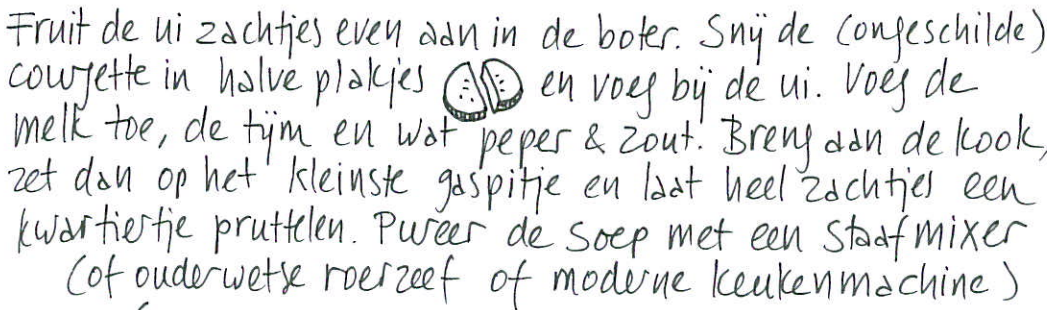 Fruit de ui zachtjes even aan in de boter. Snij de (ongeschilde)
courgette in halve plakjes en voeg bij de ui. Voeg de
melk toe, de tijm en wat peper & zout. Breng aan de kook,
zet dan op het kleinste gaspitje en laat heel zachtjes een
kwartiertje pruttelen. Pureer de soep met een staafmixer
(of ouderwetse roerzeef of moderne keukenmachine)